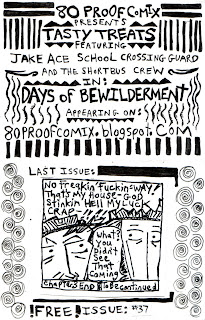 80 PROOF COMIX
PRESENTS
TASTY TREATS
FEATURING
JAKE ACE SCHOOL CROSSING GUARD
AND THE SHORTBUS CREW
IN:
DAYS OF BEWILDERMENT
APPEARING ON:
80PROOFCOMIX.blogspot.COM
LAST ISSUE:
No freakin' fuckin' way!
That's my house - GOD
Stinkin' Hell My Luck
CRAP
What
you
Didn't
See
That
Coming?
Chapter 3 END To be continued
!FREE! ISSUE: #37